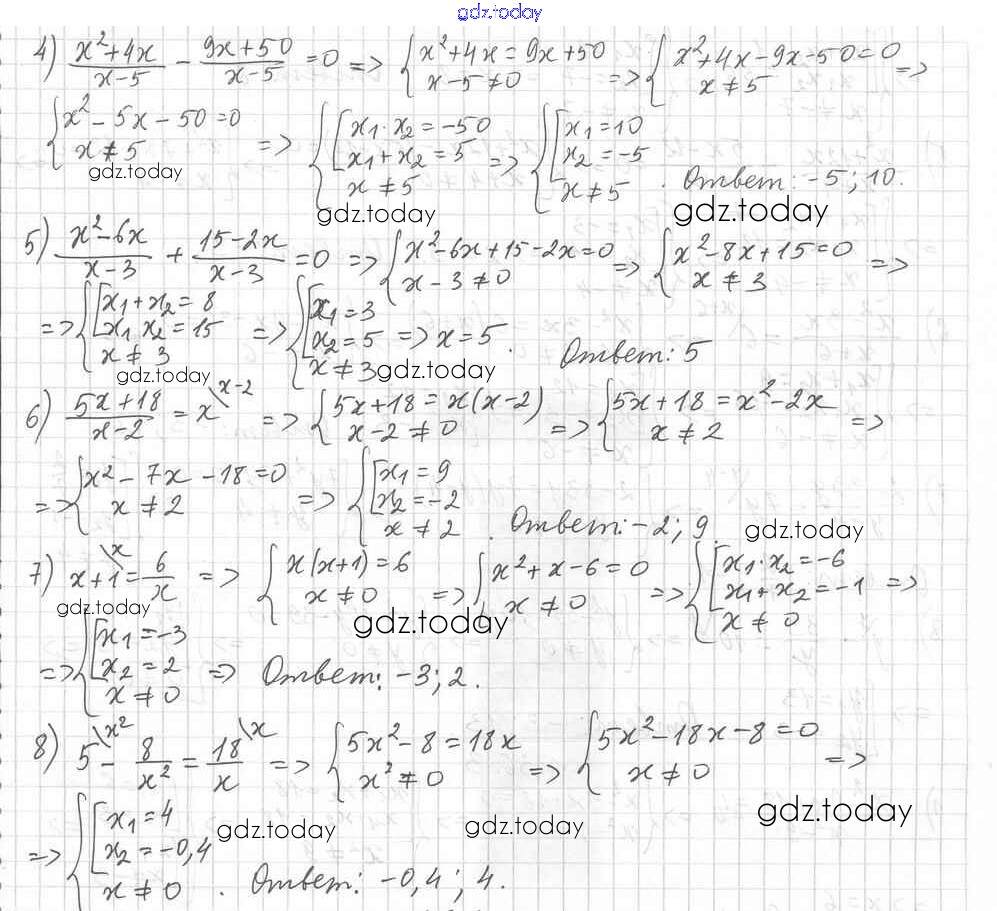 gdz.today
4) (x²+4x)/(x-5) - (9x+50)/(x-5) = 0 => { x²+4x = 9x+50; x-5≠0 => { x²+4x-9x-50=0; x≠5 =>
{ x²-5x-50=0; x≠5 => { [ x₁·x₂=-50; x₁+x₂=5; x≠5 => { [ x₁=10; x₂=-5; x≠5 . Ответ: -5; 10.
gdz.today gdz.today gdz.today
5) (x²-6x)/(x-3) + (15-2x)/(x-3) = 0 => { x²-6x+15-2x=0; x-3≠0 => { x²-8x+15=0; x≠3 =>
=> { [ x₁+x₂=8; x₁·x₂=15; x≠3 => { [ x₁=3; x₂=5; x≠3 => x=5. Ответ: 5
gdz.today gdz.today
6) (5x+18)/(x-2) = x\x-2 => { 5x+18=x(x-2); x-2≠0 => { 5x+18=x²-2x; x≠2 =>
=> { x²-7x-18=0; x≠2 => { [ x₁=9; x₂=-2; x≠2 . Ответ: -2; 9.
gdz.today
7) x+1\x = 6/x => { x(x+1)=6; x≠0 => { x²+x-6=0; x≠0 => { [ x₁·x₂=-6; x₁+x₂=-1; x≠0 =>
gdz.today gdz.today
=> { [ x₁=-3; x₂=2; x≠0 => Ответ: -3; 2.
8) 5\x² - 8/x² = 18/x\x => { 5x²-8=18x; x²≠0 => { 5x²-18x-8=0; x≠0 =>
gdz.today gdz.today gdz.today
=> { [ x₁=4; x₂=-0,4; x≠0 . Ответ: -0,4; 4.